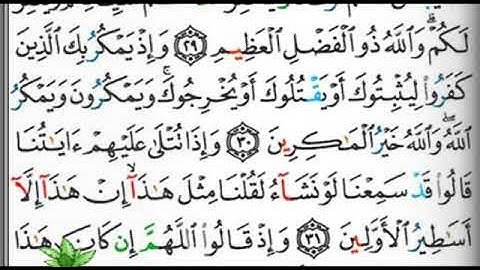 لَكُمْ ۗ وَٱللَّهُ ذُو ٱلْفَضْلِ ٱلْعَظِيمِ ٢٩ وَإِذْ يَمْكُرُ بِكَ ٱلَّذِينَ
كَفَرُوا۟ لِيُثْبِتُوكَ أَوْ يَقْتُلُوكَ أَوْ يُخْرِجُوكَ ۚ وَيَمْكُرُونَ وَيَمْكُرُ
ٱللَّهُ ۖ وَٱللَّهُ خَيْرُ ٱلْمَـٰكِرِينَ ٣٠ وَإِذَا تُتْلَىٰ عَلَيْهِمْ ءَايَـٰتُنَا
قَالُوا۟ قَدْ سَمِعْنَا لَوْ نَشَآءُ لَقُلْنَا مِثْلَ هَـٰذَآ ۙ إِنْ هَـٰذَآ إِلَّآ
أَسَـٰطِيرُ ٱلْأَوَّلِينَ ٣١ وَإِذْ قَالُوا۟ ٱللَّهُمَّ إِن كَانَ هَـٰذَا